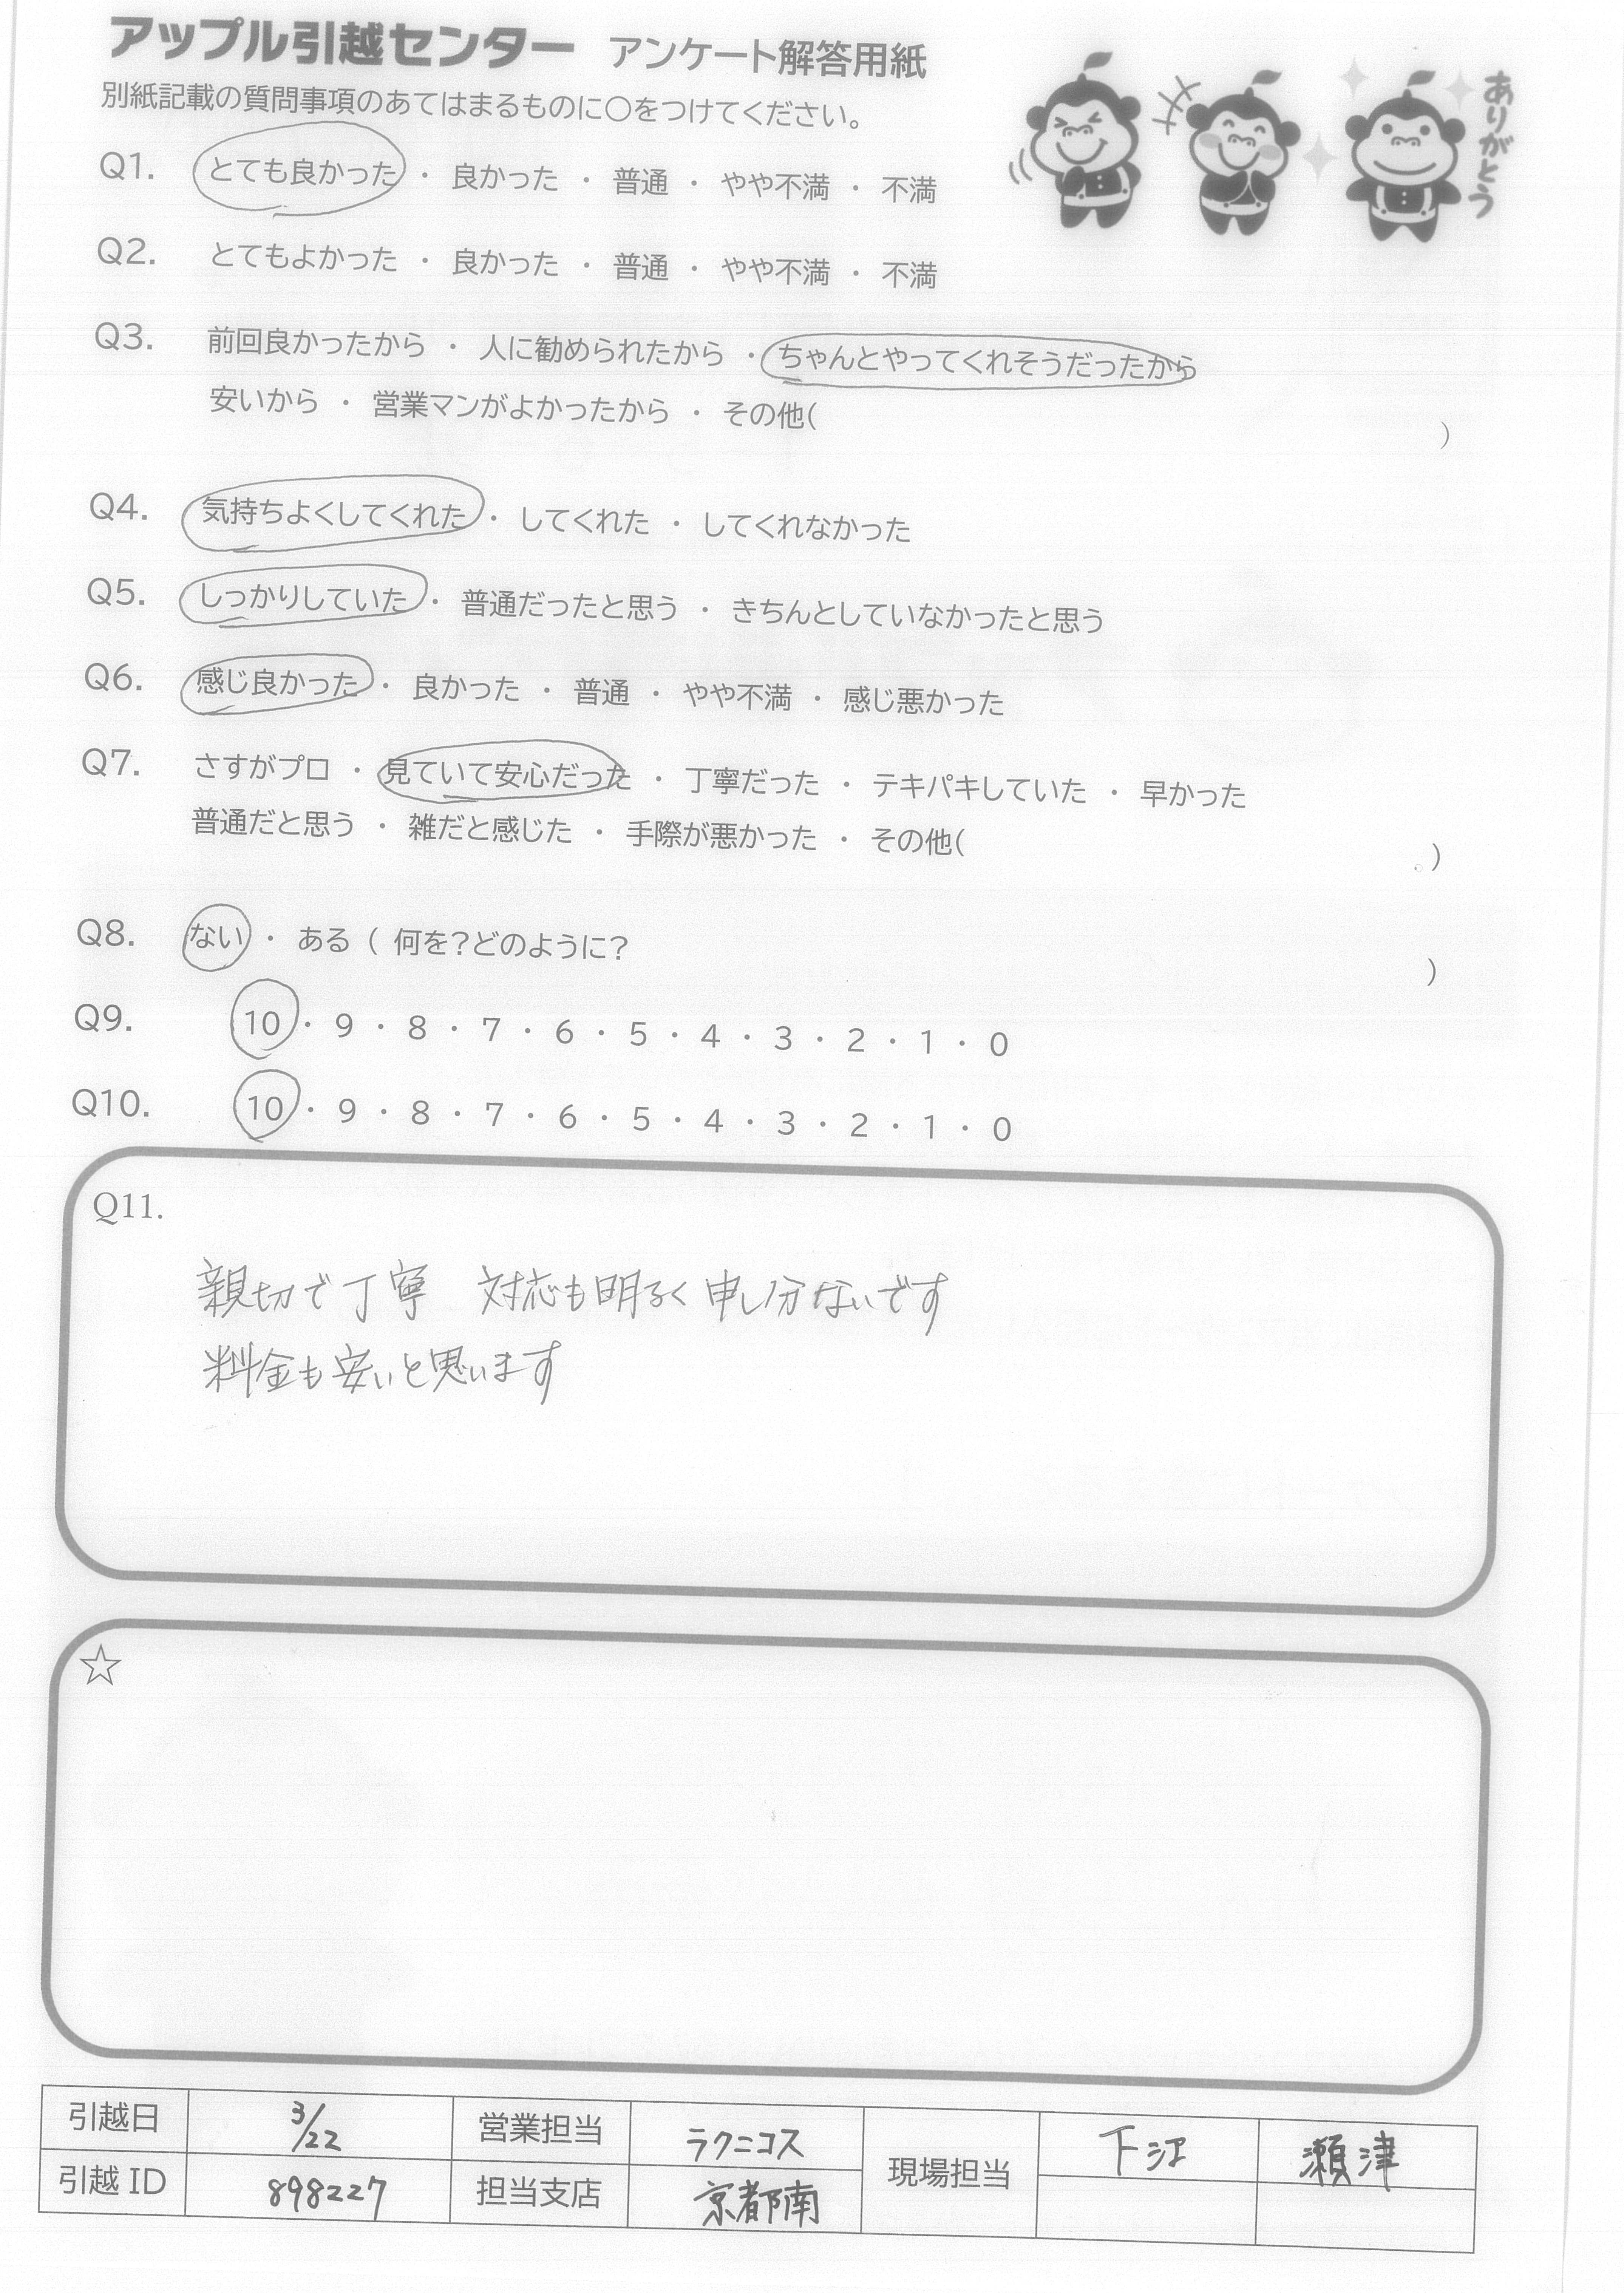 アップル引越センター アンケート解答用紙
別紙記載の質問事項のあてはまるものに〇をつけてください。
ありがとう
Q1. とても良かった ・ 良かった ・ 普通 ・ やや不満 ・ 不満
Q2. とてもよかった ・ 良かった ・ 普通 ・ やや不満 ・ 不満
Q3. 前回良かったから ・ 人に勧められたから ・ ちゃんとやってくれそうだったから
安いから ・ 営業マンがよかったから ・ その他( )
Q4. 気持ちよくしてくれた ・ してくれた ・ してくれなかった
Q5. しっかりしていた ・ 普通だったと思う ・ きちんとしていなかったと思う
Q6. 感じ良かった ・ 良かった ・ 普通 ・ やや不満 ・ 感じ悪かった
Q7. さすがプロ ・ 見ていて安心だった ・ 丁寧だった ・ テキパキしていた ・ 早かった
普通だと思う ・ 雑だと感じた ・ 手際が悪かった ・ その他( )
Q8. ない ・ ある ( 何を?どのように? )
Q9. 10 ・ 9 ・ 8 ・ 7 ・ 6 ・ 5 ・ 4 ・ 3 ・ 2 ・ 1 ・ 0
Q10. 10 ・ 9 ・ 8 ・ 7 ・ 6 ・ 5 ・ 4 ・ 3 ・ 2 ・ 1 ・ 0
Q11.
親切で丁寧 対応も明るく申し分ないです
料金も安いと思います
☆
引越日 3/22 営業担当 ラクニコス 現場担当 下江 瀬津
引越 ID 898227 担当支店 京都南